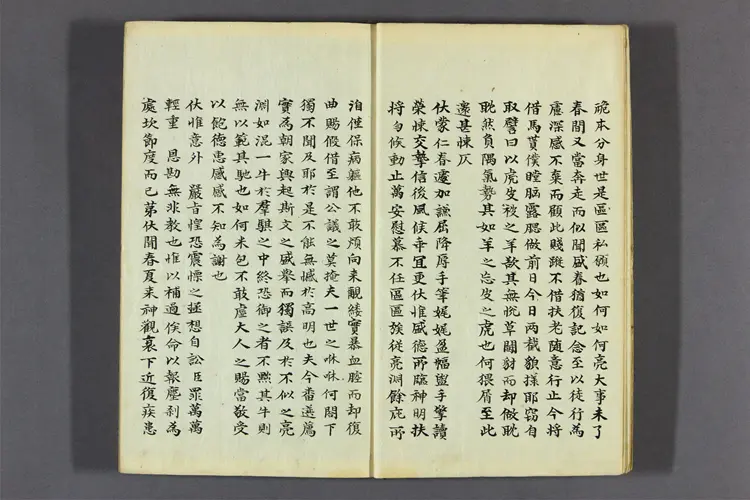 硊本分身世是區區私碩也如何如何亮大事未了
春間又當奔走而似聞盛春猶復記念至以徒行為
慮深感不棄而顧此賤蹤不借扶老隨意行止今將
借馬賃僕瞠腦露腮做前日今日兩截貌揉耶竊自
取譬曰以虎皮被之羊欺其無恍草鬪豺而却做
眈然負隅氣勢其如羊之忘皮之虎也何猥屑至此
還甚悚仄
伏蒙仁眷遽加謙屈降辱手筆娓娓盈幅盥手擎讀
榮悚交摯信後風候乖宜更伏惟盛德所臨神明扶
將匀候動止萬安慰慕不任區區族從亮淵餘庇所
洎僅保病軀他不敢煩向來覼縷實暴血腔而却復
曲賜假借至謂公議之莫掩夫一世之咻咻何閤下
獨不聞及耶於是不能無憾於高明也夫今番選薦
實為朝家興起斯文之盛舉而獨誤及於不似之亮
淵如混一牛於羣騏之中終恐御之者不黙其牛則
無以範其馳也如何未包不敢虛大人之賜當敬受
以飽德惠感感不知為謝也
伏惟意外 嚴音惶恐震慄之極想自訟臣罪萬萬
輕重 恩勘無非教也惟以補過俟命以報塵剎為
處坎節度而已第伏聞春夏来神觀裏下近復疾患